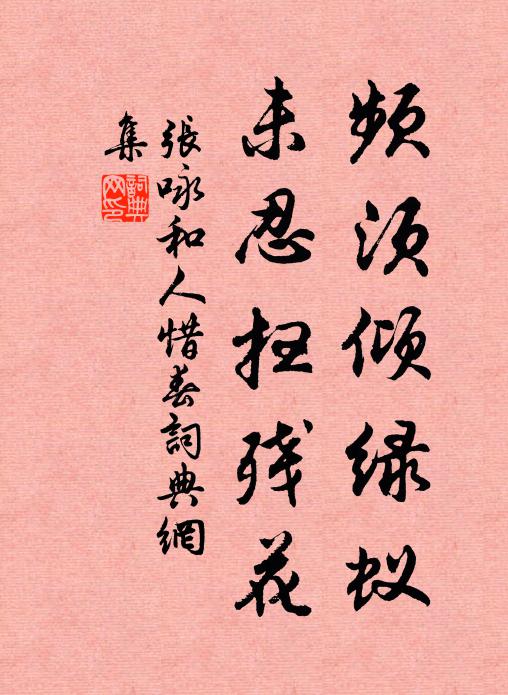 频须倾绿蚁
未忍扫残花
張咏和人惜春詞典網
集
詞典
网印